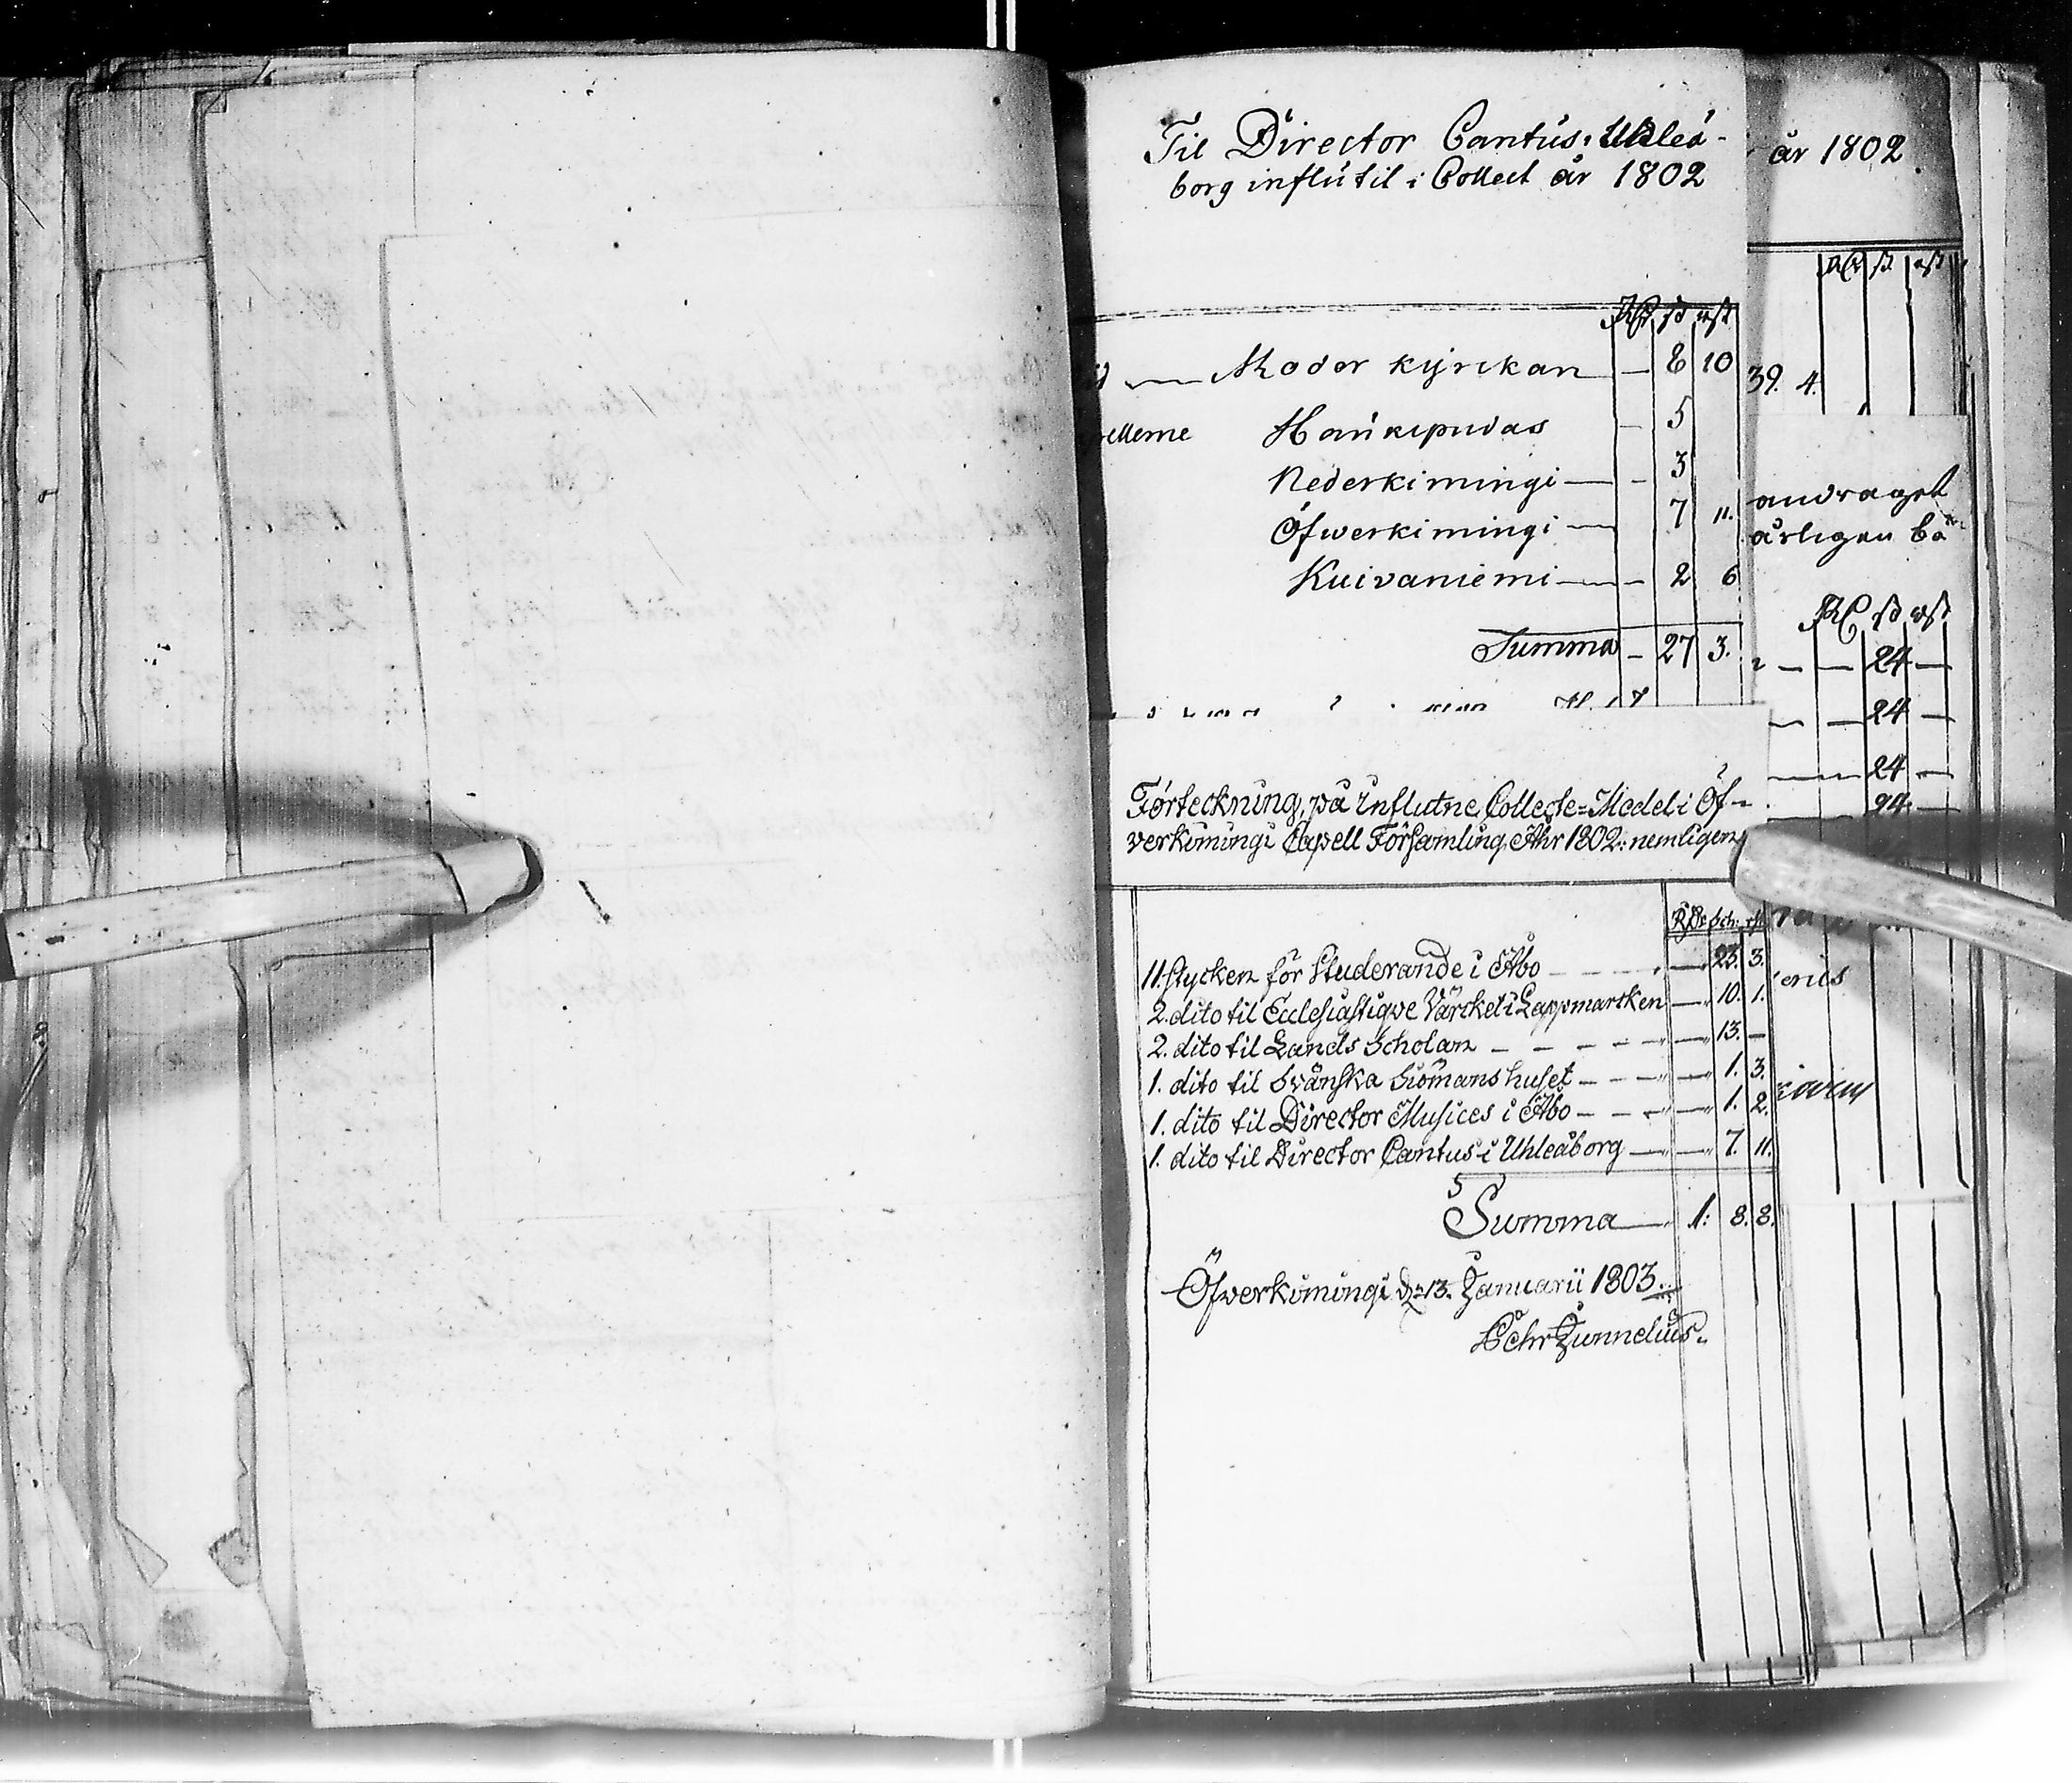 Til Director Cantus i Uhleå-
borg influtit i Collect år 1802
RD sk rst
Moder kyrckan — 8 10
pellerne Haukipudas — 5
Nederkimingi — 3
Öfwerkimingi — 7 11.
Kuivaniemi — 2 6
Summa — 27 3.
Förteckning, på influtne Collecte-Medel i Öf-
verkimingi Capell Församling Åhr 1802: nemligen
RDr Sch: rst
11. stycken för Studerande i Åbo — 23. 3.
2. dito til Ecclesiastiqve Värcket i Lappmarcken — 10. 1.
2. dito til Lands Scholan — 13. —
1. dito til Svänska Siömanshuset — 1. 3.
1. dito til Director Musices i Åbo — 1. 2.
1. dito til Director Cantus i Uhleåborg — 7. 11.
Summa 1: 8. 8.
Öfwerkimingi d. 13. Januarii 1803.
år 1802
39. 4.
andraget
årligen bö
sk rst
— 24 —
— 24 —
— 24 —
24 —